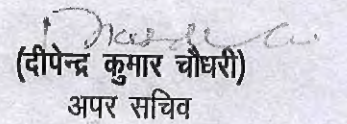 (दीपेन्द्र कुमार चौधरी)
अपर सचिव